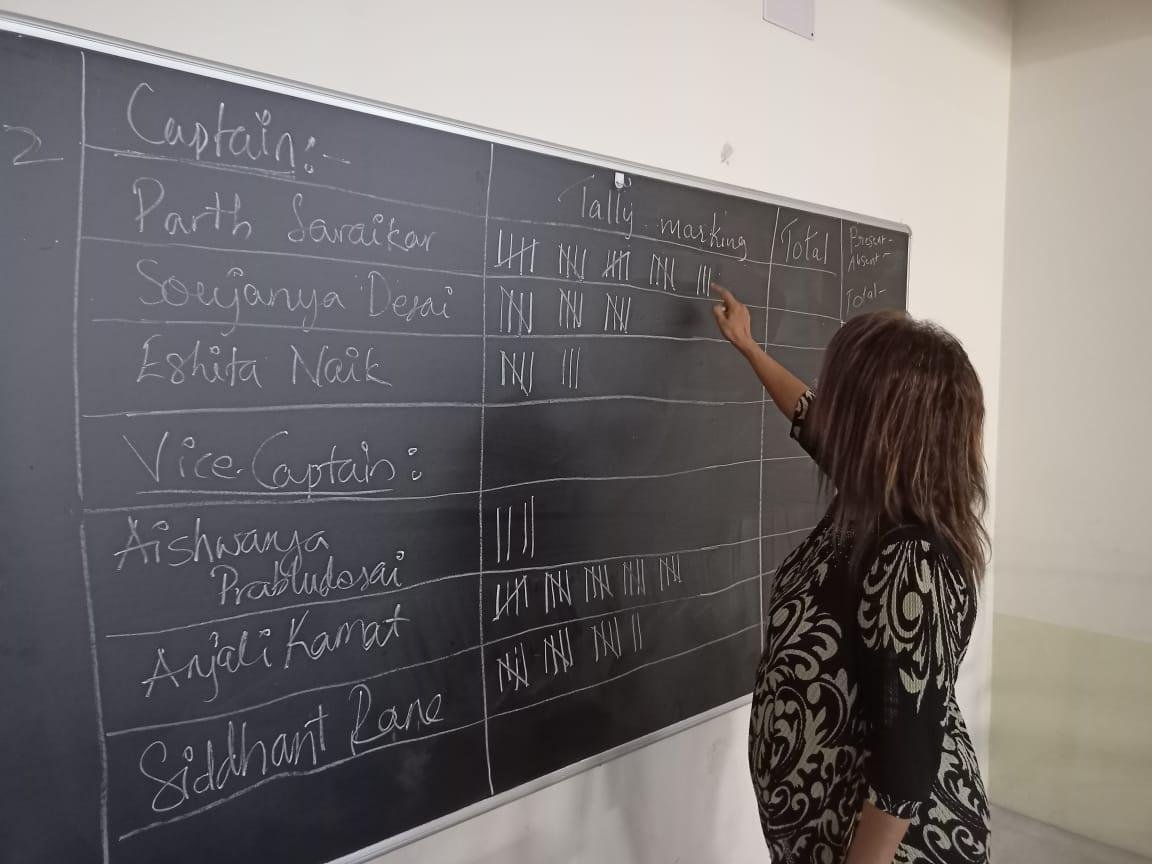 2
Captain:-
Tally marking
Total
Present-
Absent-
Total-
Parth Savaikar
Soujanya Desai
Eshita Naik
Vice-Captain:
Aishwarya
Prabhudesai
Anjali Kamat
Siddhant Rane